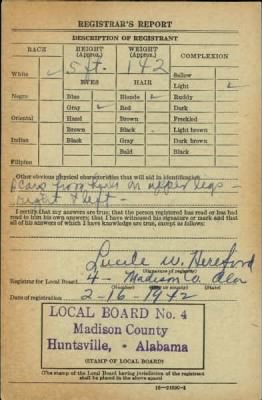 REGISTRAR'S REPORT
DESCRIPTION OF REGISTRANT
RACE HEIGHT (Approx.) WEIGHT (Approx.) COMPLEXION
White ✓ 5 ft. 142 Sallow
EYES HAIR Light ✓
Negro Blue Blonde ✓ Ruddy
Gray ✓ Red Dark
Oriental Hazel Brown Freckled
Brown Black Light brown
Indian Black Gray Dark brown
Bald Black
Filipino
Other obvious physical characteristics that will aid in identification
Scars from on upper legs -
right & left -
I certify that my answers are true; that the person registered has read or has had
read to him his own answers; that I have witnessed his signature or mark and that
all of his answers of which I have knowledge are true, except as follows:
Lucile W. Hereford
(Signature of registrar)
Registrar for Local Board 4 - Madison Co. Ala
(Number) (City or county) (State)
Date of registration 2-16-1942
LOCAL BOARD No. 4
Madison County
Huntsville, - Alabama
(STAMP OF LOCAL BOARD)
(The stamp of the Local Board having jurisdiction of the registrant
shall be placed in the above space)